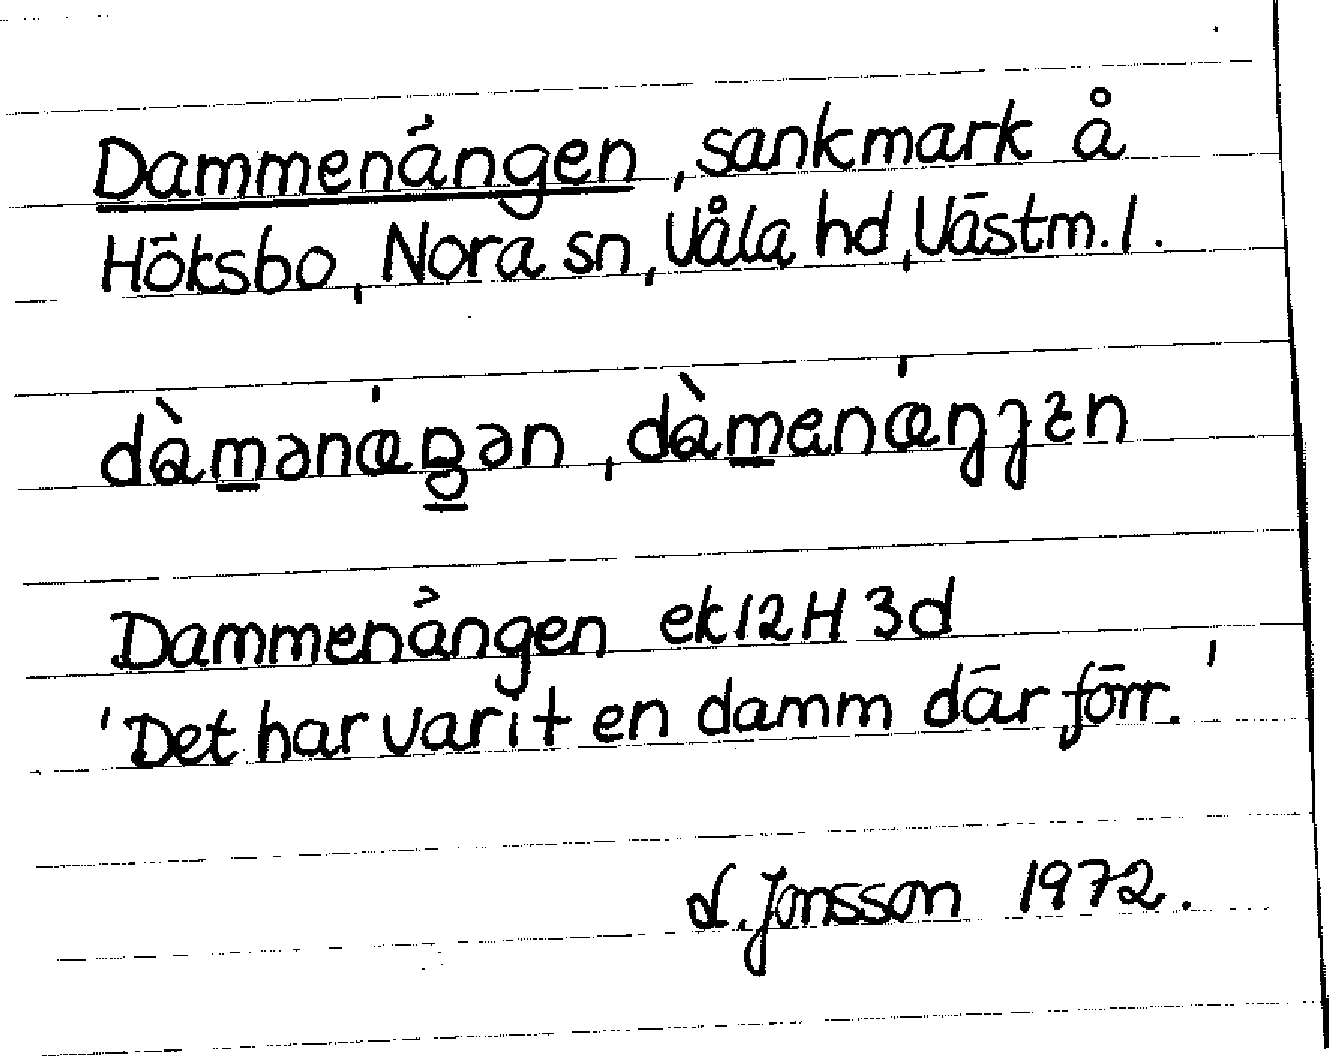 Dammenängen, sankmark å
Hötsbo, Nora sn, Våla hd, Västm. l.
dàmənǽŋən, dàmenæŋɟɛn
Dammenängen ek 12H 3d
'Det har varit en damm där förr.'
L. Jonsson 1972.